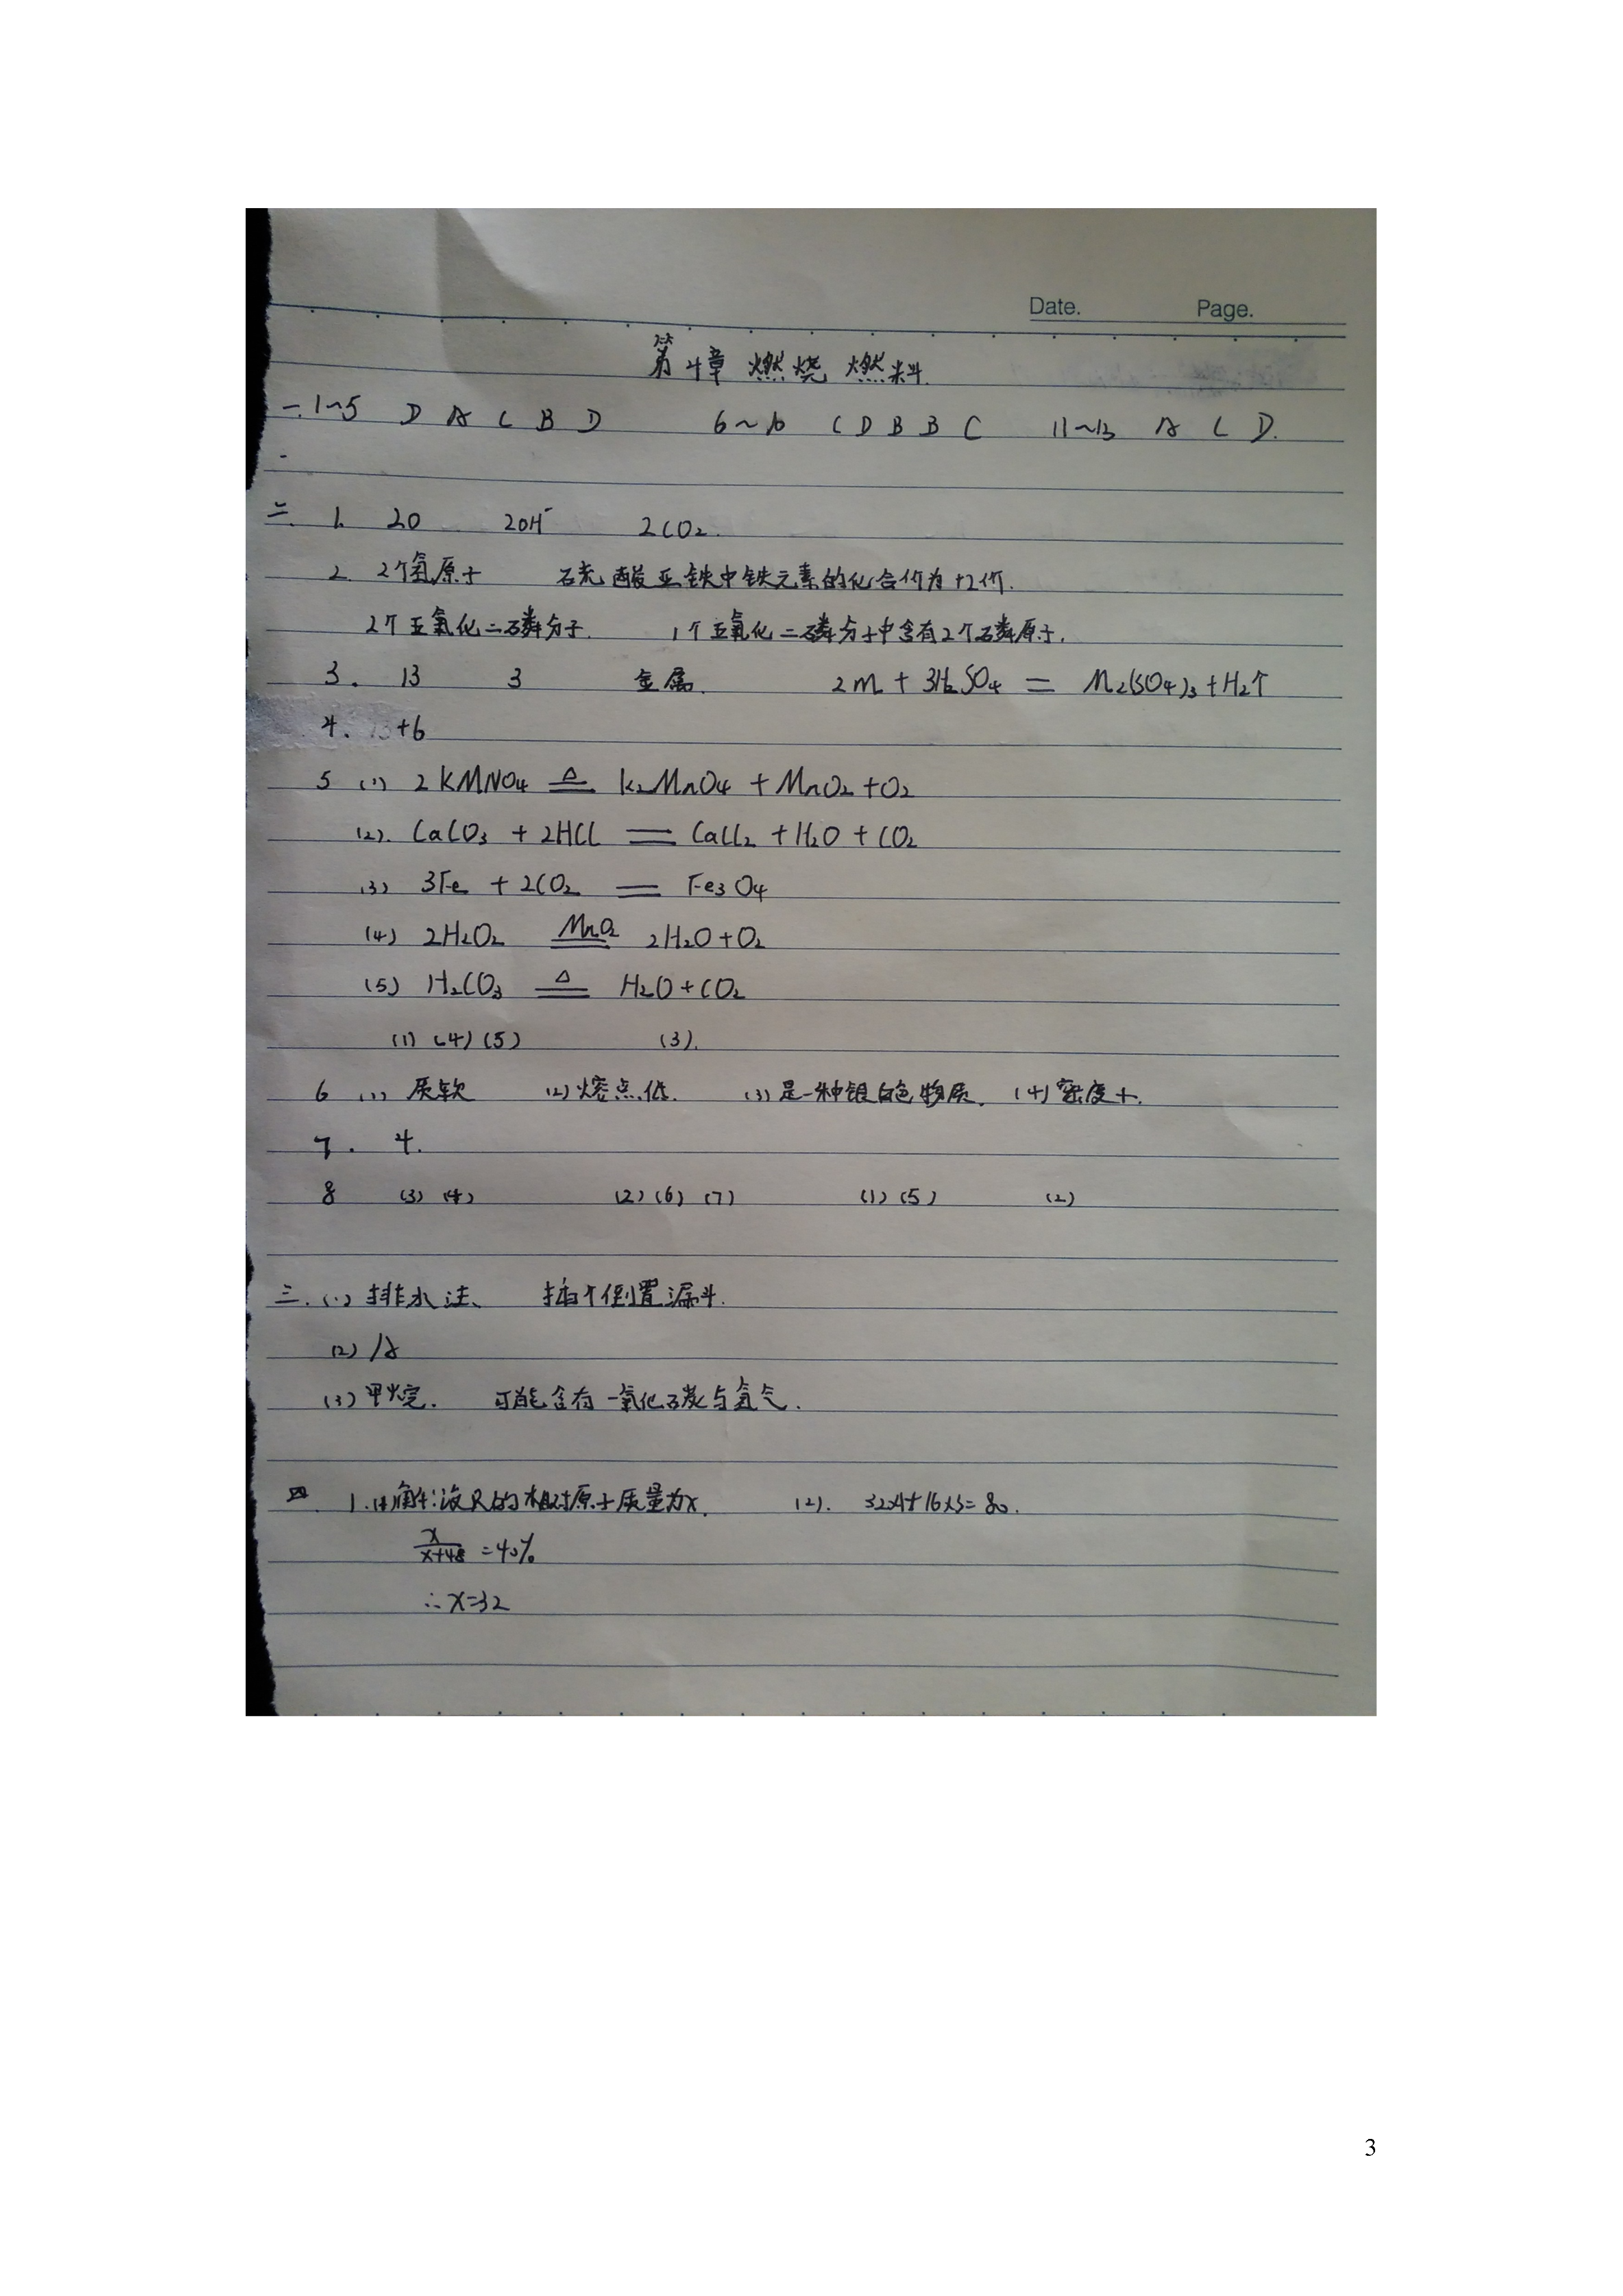 Date. Page.
第4章 燃烧 燃料
一.1~5 D A C B D 6~10 C D B B C 11~13 A C D.
二. 1. 2O 2OH⁻ 2CO₂.
2. 2个氢原子 硫酸亚铁中铁元素的化合价为+2价.
2个五氧化二磷分子. 1个五氧化二磷分子中含有2个磷原子.
3. 13 3 金属. 2M + 3H₂SO₄ = M₂(SO₄)₃ + H₂↑
4. +6
5 (1) 2KMNO₄ ≜ K₂MnO₄ + MnO₂ + O₂
(2). CaCO₃ + 2HCl = CaCl₂ + H₂O + CO₂
(3) 3Fe + 2CO₂ = Fe₃O₄
(4) 2H₂O₂ MnO₂ = 2H₂O + O₂
(5) H₂CO₃ ≜ H₂O + CO₂
(1) (4) (5) (3).
6 (1) 质软 (2) 熔点低. (3) 是一种银白色物质. (4) 密度小.
7. 4.
8 (3) (4) (2) (6) (7) (1) (5) (2)
三.(1) 排水法、 插个倒置漏斗.
(2) A
(3) 甲烷. 可能含有一氧化碳与氢气.
四. 1.(1)解:设R的相对原子质量为x. (2). 32×1+16×3=80.
x/(x+48) =40%
∴x=32
3